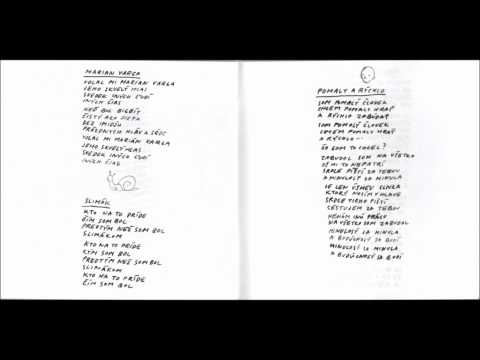 MARIAN VARGA
VOLAL MI MARIAN VARGA
JEHO SKVELÝ HLAS
SVEDOK INÝCH ĽUDÍ
INÝCH ČIAS
KEĎ BOL BIGBÍT
ČISTÝ AKO DIEŤA
BEZ IMIDŽU
PRÁZDNYCH HLÁV A SŔDC
VOLAL MI MARIÁN VARGA
JEHO SKVELÝ HLAS
SVEDOK INÝCH ĽUDÍ
INÝCH ČIAS
SLIMÁK
KTO NA TO PRÍDE
ČÍM SOM BOL
PREDTÝM NEŽ SOM BOL
SLIMÁKOM
KTO NA TO PRÍDE
KÝM SOM BOL
PREDTÝM NEŽ SOM BOL
SLIMÁKOM
KTO NA TO PRÍDE
ČÍM SOM BOL
POMALY A RÝCHLO
SOM POMALÝ ČLOVEK
CHCEM POMALY HRAŤ
A RÝCHLO ZABÚDAŤ
SOM POMALÝ ČLOVEK
CHCEM POMALY HRAŤ
A RÝCHLO...
ČO SOM TO CHCEL?
ZABUDOL SOM NA VŠETKO
ČO MI TO NEPATRÍ
SRDCE PIŠTÍ ZA TEBOU
A MINULOSŤ SA MINULA
JE LEN ÚSMEV
KTORÝ NOSÍM V HLAVE
SRDCE TICHO PIŠTÍ
CESTUJEM ZA TEBOU
NEMÁM INÚ PRÁCU
NA VŠETKO SOM ZABUDOL
MINULOSŤ SA MINULA
A BUDÚCNOSŤ SA BOJÍ
MINULOSŤ SA MINULA
A BUDÚCNOSŤ SA BOJÍ